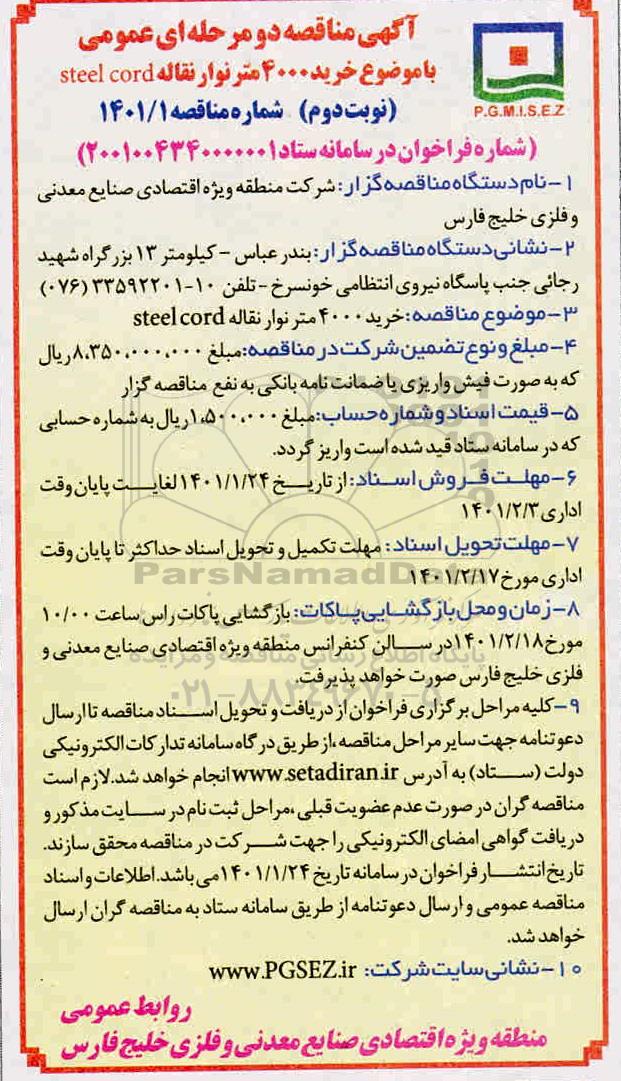 آگهی مناقصه دو مرحله ای عمومی
با موضوع خرید ۴۰۰۰ متر نوار نقاله steel cord
(نوبت دوم) شماره مناقصه ۱۴۰۱/۱
P.G.M.I.S.E.Z
(شماره فراخوان در سامانه ستاد ۲۰۰۱۰۰۴۳۴۰۰۰۰۰۰۱)
۱-نام دستگاه مناقصه گزار: شرکت منطقه ویژه اقتصادی صنایع معدنی
و فلزی خلیج فارس
۲-نشانی دستگاه مناقصه گزار: بندر عباس - کیلومتر ۱۳ بزرگراه شهید
رجائی جنب پاسگاه نیروی انتظامی خونسرخ - تلفن ۱۰-۳۳۵۹۲۲۰۱ (۰۷۶)
۳-موضوع مناقصه: خرید ۴۰۰۰ متر نوار نقاله steel cord
۴-مبلغ و نوع تضمین شرکت در مناقصه: مبلغ ۸،۳۵۰،۰۰۰،۰۰۰ ریال
که به صورت فیش واریزی یا ضمانت نامه بانکی به نفع مناقصه گزار
۵-قیمت اسناد و شماره حساب: مبلغ ۱،۵۰۰،۰۰۰ ریال به شماره حسابی
که در سامانه ستاد قید شده است واریز گردد.
۶-مهلت فروش اسناد: از تاریخ ۱۴۰۱/۱/۲۴ لغایت پایان وقت
اداری ۱۴۰۱/۲/۳
۷-مهلت تحویل اسناد: مهلت تکمیل و تحویل اسناد حداکثر تا پایان وقت
اداری مورخ ۱۴۰۱/۲/۱۷
ParsNamadData
۸-زمان و محل بازگشایی پاکات: بازگشایی پاکات راس ساعت ۱۰/۰۰
مورخ ۱۴۰۱/۲/۱۸ در سالن کنفرانس منطقه ویژه اقتصادی صنایع معدنی و
پایگاه اطلاع رسانی مناقصه و مزایده
فلزی خلیج فارس صورت خواهد پذیرفت.
۰۲۱-۸۸۳۴۹۶۷۰-۵
۹-کلیه مراحل برگزاری فراخوان از دریافت و تحویل اسناد مناقصه تا ارسال
دعوتنامه جهت سایر مراحل مناقصه، از طریق درگاه سامانه تدارکات الکترونیکی
دولت (ستاد) به آدرس www.setadiran.ir انجام خواهد شد. لازم است
مناقصه گران در صورت عدم عضویت قبلی، مراحل ثبت نام در سایت مذکور و
دریافت گواهی امضای الکترونیکی را جهت شرکت در مناقصه محقق سازند.
تاریخ انتشار فراخوان در سامانه تاریخ ۱۴۰۱/۱/۲۴ می باشد. اطلاعات و اسناد
مناقصه عمومی و ارسال دعوتنامه از طریق سامانه ستاد به مناقصه گران ارسال
خواهد شد.
۱۰-نشانی سایت شرکت: www.PGSEZ.ir
روابط عمومی
منطقه ویژه اقتصادی صنایع معدنی و فلزی خلیج فارس